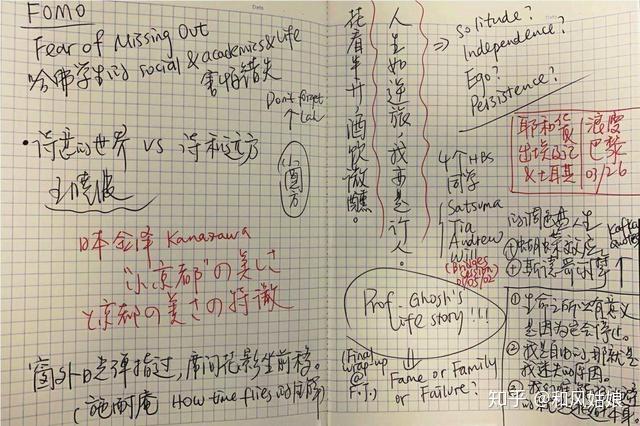 FOMO
Fear of Missing Out
哈佛学生的 social & academics & life
害怕错失
Don't forget
Lah
诗意的世界 vs 诗和远方
王小波
小酒方
日本金泽 Kanazawa
"小京都"の美しさ
と京都の美さの特徴
窗外日光弹指过，席间花影坐前移。
(施耐庵 How time flies的古解)
花看半开，酒饮微醺。
人生如逆旅，我亦是行人。
⇒ Solitude?
Independence?
Ego?
Persistence?
4个HBS
同学
Satsuma
Tia
Andrew
Will
(Bridges
Session)
05/02
耶和华
出埃及记
& 土耳其
浪漫
巴黎
03/26
蝴蝶效应
斯德哥尔摩
Kafka
quotes
① 生命之所以有意义
是因为它会停止。
② 我是自由的，那就是
我迷失的原因。
③
Prof. Ghosh's
life story!!!
(Final
wrap-up
@
F.T.)
Fame or Family
or Failure?
知乎 @和风姑娘